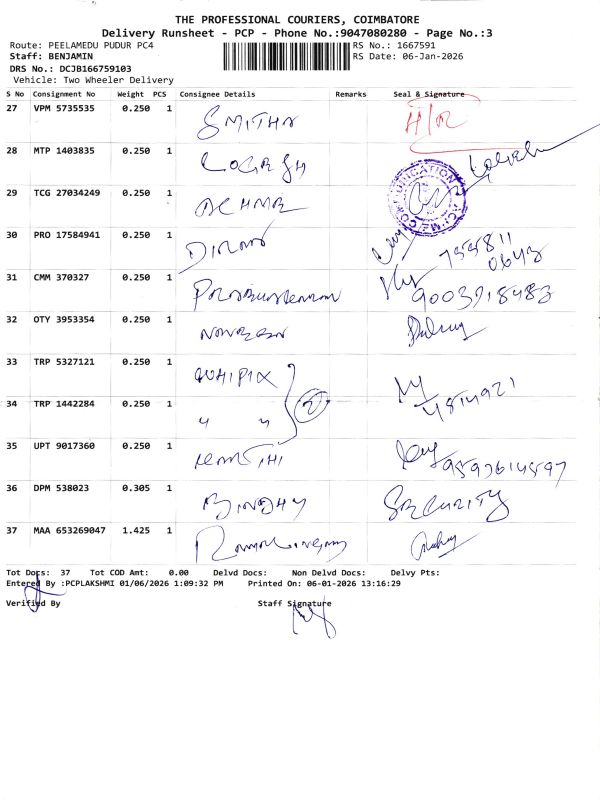 THE PROFESSIONAL COURIERS, COIMBATORE
Delivery Runsheet - PCP - Phone No.:9047080280 - Page No.:3
Route: PEELAMEDU PUDUR PC4 RS No.: 1667591
Staff: BENJAMIN RS Date: 06-Jan-2026
DRS No.: DCJB166759103
Vehicle: Two Wheeler Delivery
S No Consignment No Weight PCS Consignee Details Remarks Seal & Signature
27 VPM 5735535 0.250 1 SMITHA H/R
28 MTP 1403835 0.250 1 LOGESH
29 TCG 27034249 0.250 1
30 PRO 17584941 0.250 1 755811
0643
31 CMM 370327 0.250 1 9003918483
32 OTY 3953354 0.250 1
33 TRP 5327121 0.250 1 WHIPIX
34 TRP 1442284 0.250 1 " " 2 4814921
35 UPT 9017360 0.250 1 9593614597
36 DPM 538023 0.305 1 BINDHY SECURITY
37 MAA 653269047 1.425 1
Tot Docs: 37 Tot COD Amt: 0.00 Delvd Docs: Non Delvd Docs: Delvy Pts:
Entered By :PCPLAKSHMI 01/06/2026 1:09:32 PM Printed On: 06-01-2026 13:16:29
Verified By Staff Signature